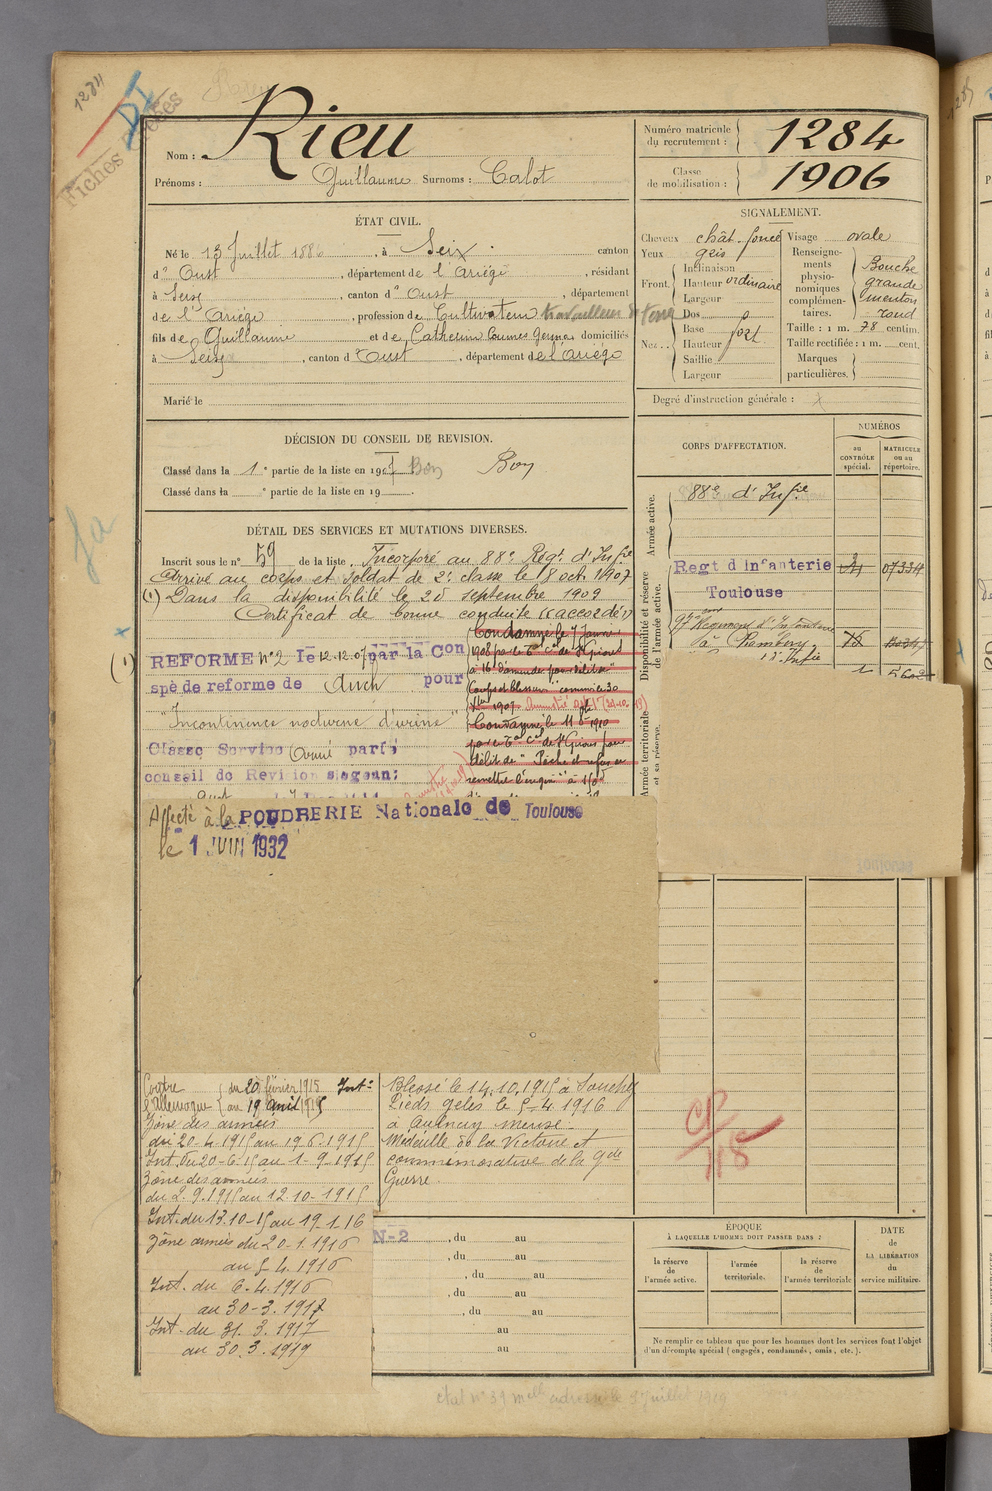 1284
Fiches
Rieu
Nom :
Prénoms : Guillaume Surnoms : Calot
Numéro matricule du recrutement : 1284
Classe de mobilisation : 1906
ÉTAT CIVIL.
Né le 13 Juillet 1886, à Seix canton
d' Oust, département de l'Ariège, résidant
à Seix, canton d' Oust, département
de l'Ariège, profession de Cultivateur travailleur de terre
fils de Guillaume et de Catherine domiciliés
à Seix, canton d' Oust, département de l'Ariège
Marié le
SIGNALEMENT.
Cheveux chât. foncé
Yeux gris
Front. Inclinaison
Hauteur ordinaire
Largeur
Nez. Dos
Base
Hauteur fort
Saillie
Largeur
Visage ovale
Renseignements physionomiques complémentaires. Bouche grande menton rond
Taille : 1 m. 78 centim.
Taille rectifiée : 1 m. cent.
Marques particulières.
Degré d'instruction générale :
DÉCISION DU CONSEIL DE REVISION.
Classé dans la 1e partie de la liste en 1907 Bon Bon
Classé dans la e partie de la liste en 19 .
CORPS D'AFFECTATION.
NUMÉROS
au CONTRÔLE spécial.
MATRICULE ou au répertoire.
Armée active.
88e d'Infie
Disponibilité et réserve de l'armée active.
Regt d Infanterie
Toulouse
97e Régiment d'Infanterie
à Chambéry
Armée territoriale et sa réserve.
DÉTAIL DES SERVICES ET MUTATIONS DIVERSES.
Inscrit sous le n° 59 de la liste. Incorporé au 88e Régt d'Infie
Arrivé au corps et soldat de 2e classe le 8 octb 1907
(1) Dans la disponibilité le 25 septembre 1909
Certificat de bonne conduite "accordé"
Condamné le 7 Janvier
1908 par le Tal Cel de St Girons
à 16f d'amende pour délit de
Coups et blessures commis le 30
1907 Amnistié
Condamné le 11 1910
par le Tal Cel de St Girons pour
délit de "Pêche et refus de
remettre l'engin" à
(1) REFORME N° 2 le 12.12.07 par la Con
spé de reforme de Auch pour
"Incontinence nocturne d'urine"
Classé Service Armé par le
conseil de Revision seogeant
Affecté à la POUDRERIE Nationale de Toulouse
le 1 JUIN 1932
Contre l'Allemagne du 20 février 1915 au 19 avril 1915 Int.
Zône des armées
du 20-4-1915 au 19.6.1915
Int. du 20-6-15 au 1-9-1915
Zône des armées
du 2.9.1915 au 12.10-1915
Int. du 13.10-15 au 19.1.16
Zône armées du 20-1.1916
au 5.4.1916
Int. du 6.4.1916
au 30-3.1917
Int. du 31.3.1917
au 30.3.1919
Blessé le 14.10.1915 à Souchez
Pieds gelés le 5-4.1916
à Meuse.
Médaille de la Victoire et
commémorative de la Gde
Guerre
N-2
, du au
, du au
, du au
, du au
, du au
au
au
ÉPOQUE
À LAQUELLE L'HOMME DOIT PASSER DANS :
la réserve de l'armée active.
l'armée territoriale.
la réserve de l'armée territoriale
DATE de LA LIBÉRATION du service militaire.
Ne remplir ce tableau que pour les hommes dont les services font l'objet
d'un décompte spécial (engagés, condamnés, omis, etc.).